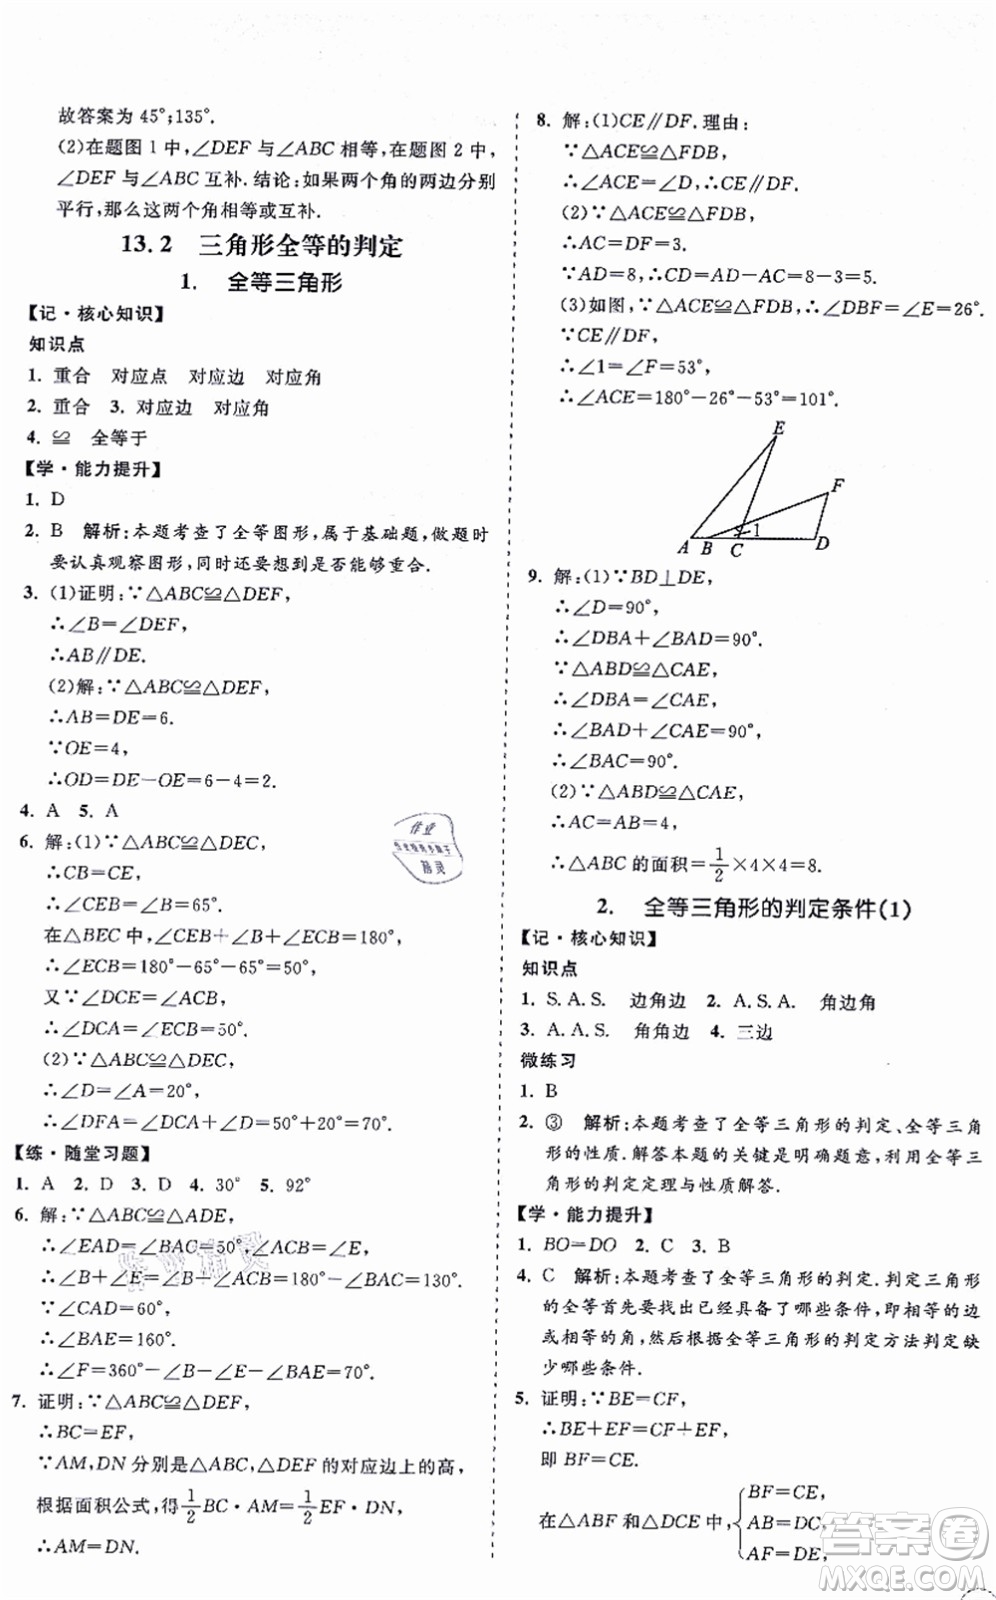 故答案为 45°;135°.
(2)在题图 1 中,∠DEF 与∠ABC 相等,在题图 2 中,
∠DEF 与∠ABC 互补.结论:如果两个角的两边分别
平行,那么这两个角相等或互补.
13.2 三角形全等的判定
1. 全等三角形
【记·核心知识】
知识点
1. 重合 对应点 对应边 对应角
2. 重合 3. 对应边 对应角
4. ≌ 全等于
【学·能力提升】
1. D
2. B 解析:本题考查了全等图形,属于基础题,做题时
要认真观察图形,同时还要想到是否能够重合.
3. (1)证明:∵△ABC≌△DEF,
∴∠B=∠DEF,
∴AB∥DE.
(2)解:∵△ABC≌△DEF,
∴AB=DE=6.
∵OE=4,
∴OD=DE-OE=6-4=2.
4. A 5. A
6. 解:(1)∵△ABC≌△DEC,
∴CB=CE,
∴∠CEB=∠B=65°.
在△BEC 中,∠CEB+∠B+∠ECB=180°,
∴∠ECB=180°-65°-65°=50°,
又∵∠DCE=∠ACB,
∴∠DCA=∠ECB=50°.
(2)∵△ABC≌△DEC,
∴∠D=∠A=20°,
∴∠DFA=∠DCA+∠D=50°+20°=70°.
【练·随堂习题】
1. A 2. D 3. D 4. 30° 5. 92°
6. 解:∵△ABC≌△ADE,
∴∠EAD=∠BAC=50°,∠ACB=∠E,
∴∠B+∠E=∠B+∠ACB=180°-∠BAC=130°.
∵∠CAD=60°,
∴∠BAE=160°.
∴∠F=360°-∠B-∠E-∠BAE=70°.
7. 证明:∵△ABC≌△DEF,
∴BC=EF,
∵AM,DN 分别是△ABC,△DEF 的对应边上的高,
根据面积公式,得1/2BC·AM=1/2EF·DN,
∴AM=DN.
8. 解:(1)CE∥DF.理由:
∵△ACE≌△FDB,
∴∠ACE=∠D,∴CE∥DF.
(2)∵△ACE≌△FDB,
∴AC=DF=3.
∵AD=8,∴CD=AD-AC=8-3=5.
(3)如图,∵△ACE≌△FDB,∴∠DBF=∠E=26°.
∵CE∥DF,
∴∠1=∠F=53°,
∴∠ACE=180°-26°-53°=101°.
E
F
1
A B C D
9. 解:(1)∵BD⊥DE,
∴∠D=90°,
∴∠DBA+∠BAD=90°.
∵△ABD≌△CAE,
∴∠DBA=∠CAE,
∴∠BAD+∠CAE=90°,
∴∠BAC=90°.
(2)∵△ABD≌△CAE,
∴AC=AB=4.
∴△ABC 的面积=1/2×4×4=8.
2. 全等三角形的判定条件(1)
【记·核心知识】
知识点
1. S. A. S. 边角边 2. A. S. A. 角边角
3. A. A. S. 角角边 4. 三边
微练习
1. B
2. ③ 解析:本题考查了全等三角形的判定、全等三角
形的性质.解答本题的关键是明确题意,利用全等三
角形的判定定理与性质解答.
【学·能力提升】
1. BO=DO 2. C 3. B
4. C 解析:本题考查了全等三角形的判定.判定三角形
的全等首先要找出已经具备了哪些条件,即相等的边
或相等的角,然后根据全等三角形的判定方法判定缺
少哪些条件.
5. 证明:∵BE=CF,
∴BE+EF=CF+EF,
即 BF=CE.
在△ABF 和△DCE 中,{BF=CE,
AB=DC,
AF=DE,
答案圈
MXQE.COM